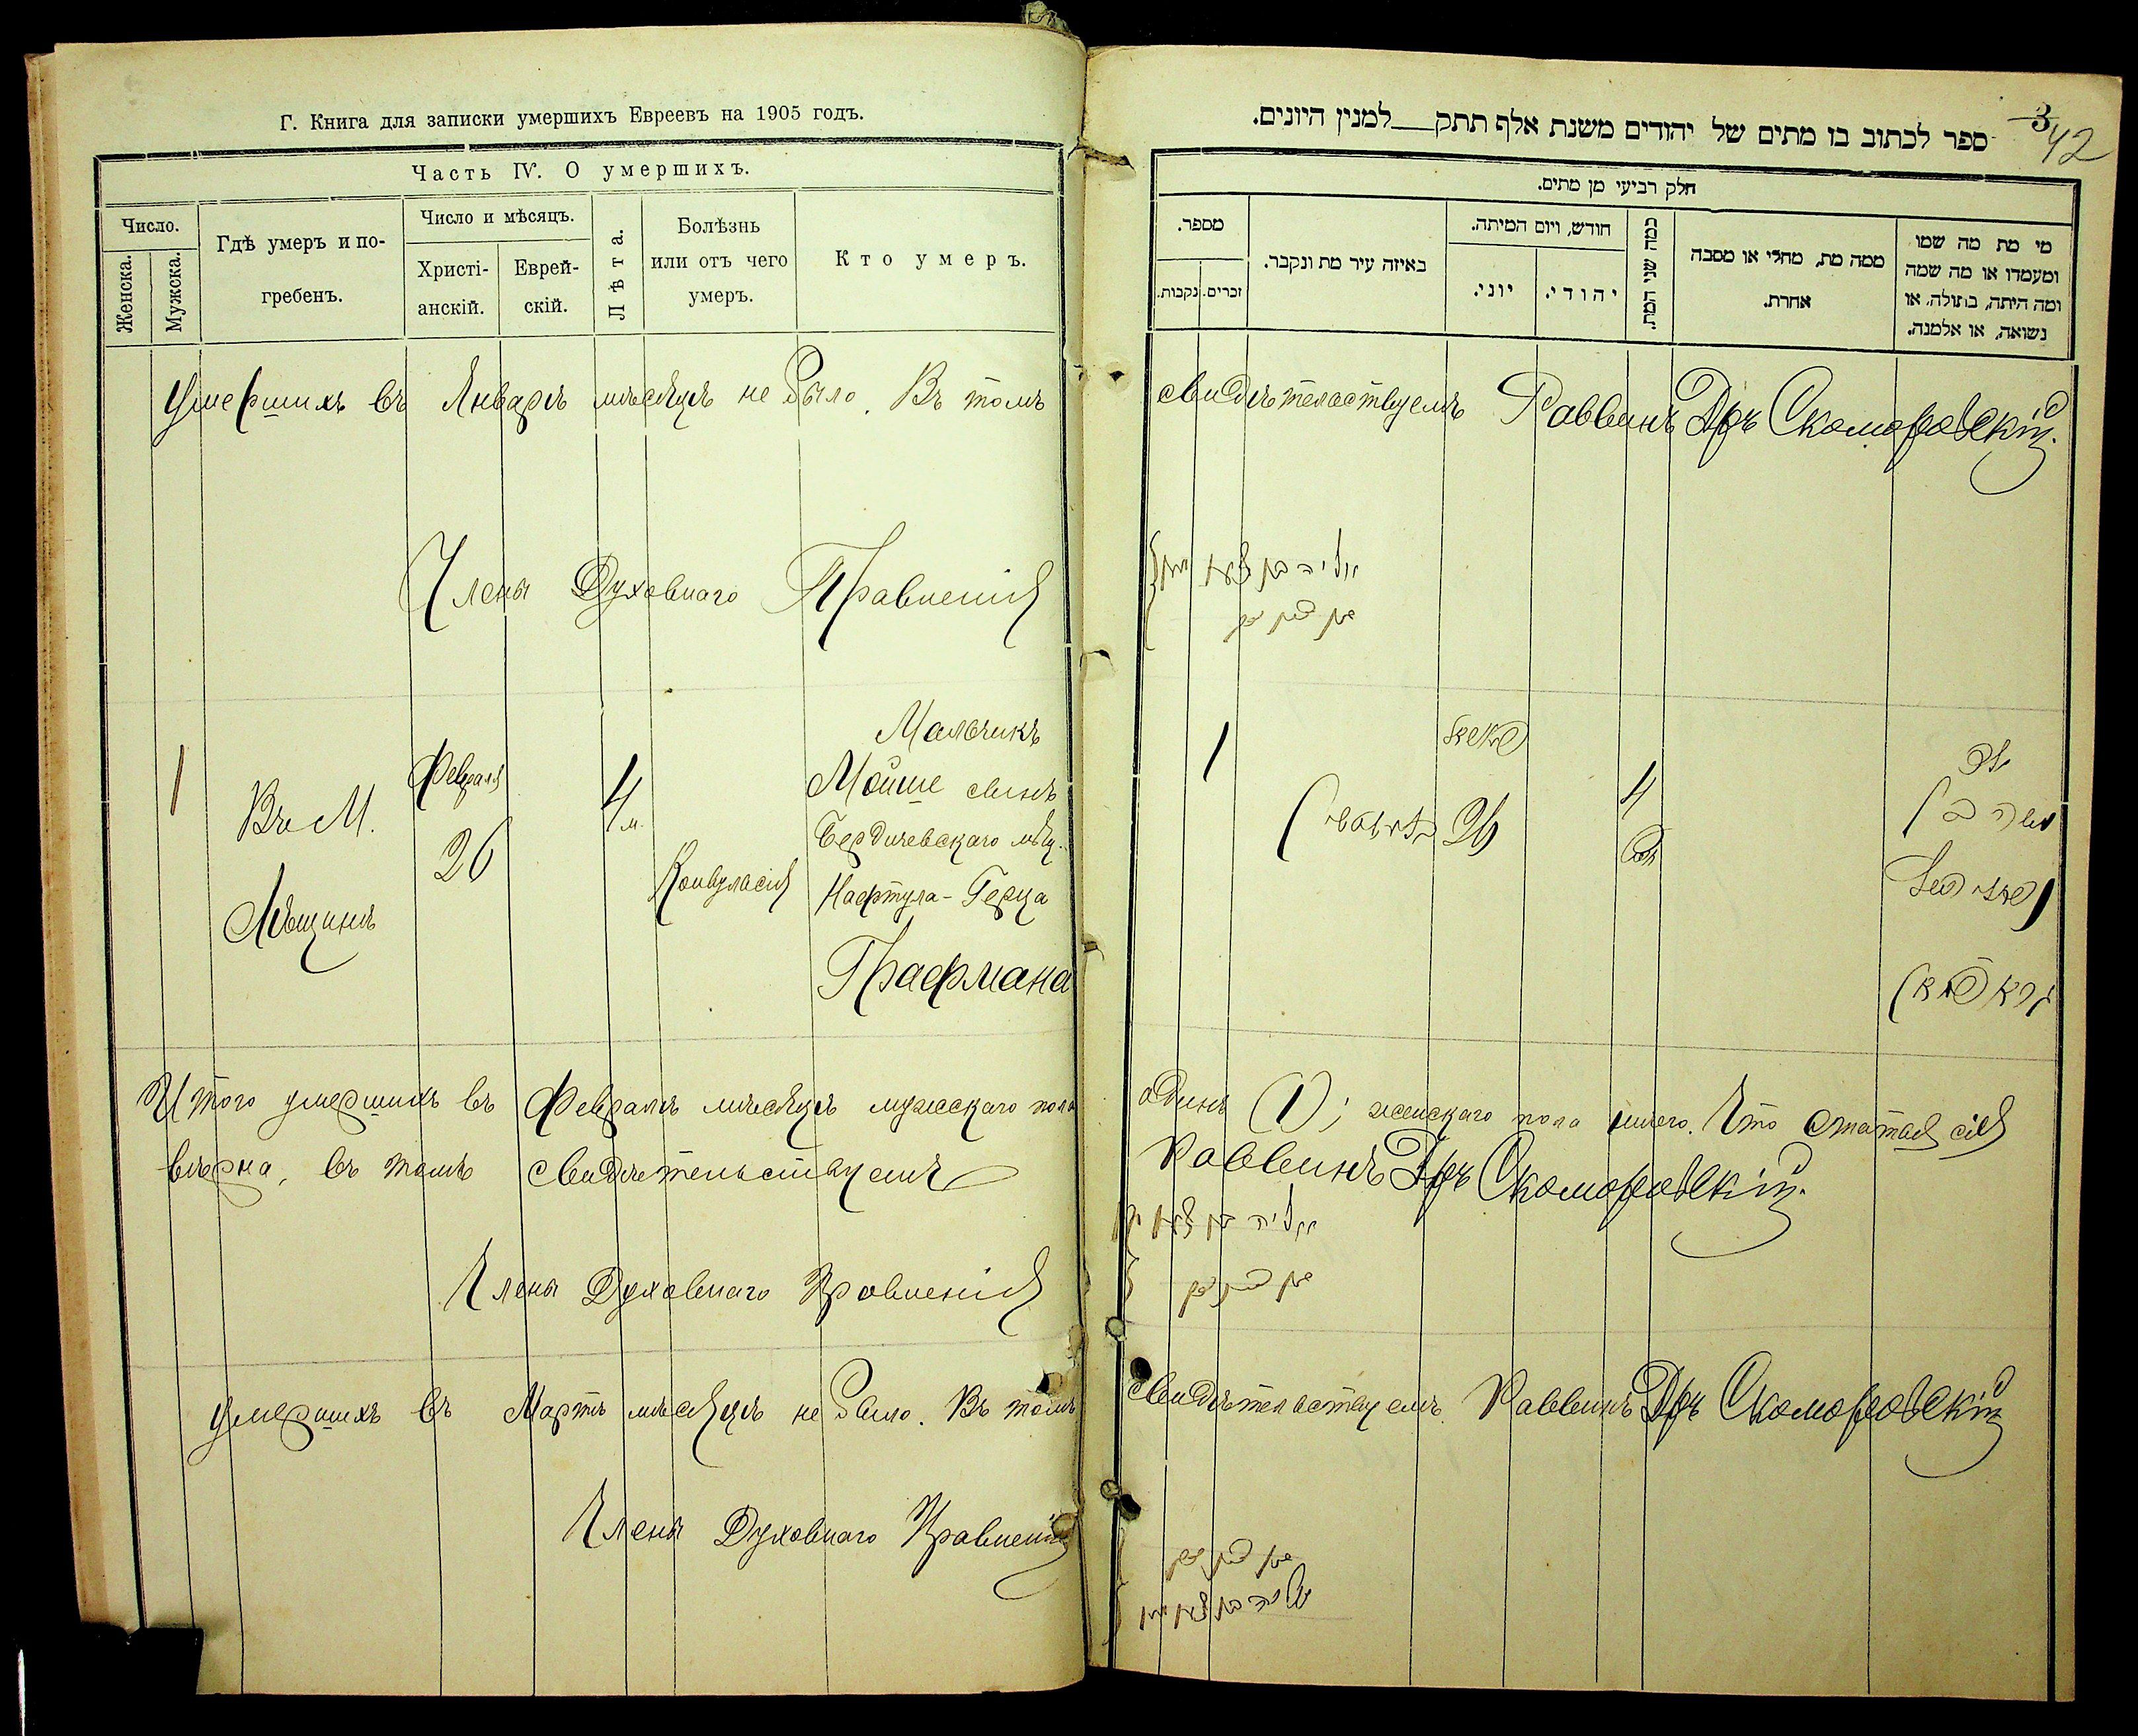 Г. Книга для записки умершихъ Евреевъ на 1905 годъ.
Часть IV. О умершихъ.
Число.
Женска.
Мужска.
Гдѣ умеръ и по-
гребенъ.
Число и мѣсяцъ.
Христі-
анскій.
Еврей-
скій.
Лѣта.
Болѣзнь
или отъ чего
умеръ.
Кто умеръ.
Умершихъ въ Январѣ мѣсяцѣ не было. Въ томъ
Члены Духовнаго Правленія
1
Въ М.
Лѣщинѣ
Февраля
26
4
м.
Конвульсія
Мальчикъ
Мойше сынъ
Бердичевскаго мѣщ.
Нафтула-Герца
Графмана
Итого умершихъ въ Февралѣ мѣсяцѣ мужескаго пола
вѣрна, въ томъ свидѣтельствуемъ
Члены Духовнаго Правленія
Умершихъ въ Мартѣ мѣсяцѣ не было. Въ томъ
Члены Духовнаго Правленія
ספר לכתוב בו מתים של יהודים משנת אלף תתק למנין היונים.
3
42
חלק רביעי מן מתים.
מספר.
נקבות.
זכרים.
באיזה עיר מת ונקבר.
חודש, ויום המיתה.
יוני.
יהודי.
כמה שני המת.
ממה מת, מחלי או מסבה
אחרת.
מי מת מה שמו
ומעמדו או מה שמה
ומה היתה, בתולה, או
נשואה, או אלמנה.
свидѣтельствуемъ Раввинъ Дръ Скоморовскій.
1
26
4
משה בן
נפתלי הערץ
גראפמאן
одинъ (1); женскаго пола ничего. Что статья сія
Раввинъ Дръ Скоморовскій.
свидѣтельствуемъ. Раввинъ Дръ Скоморовскій